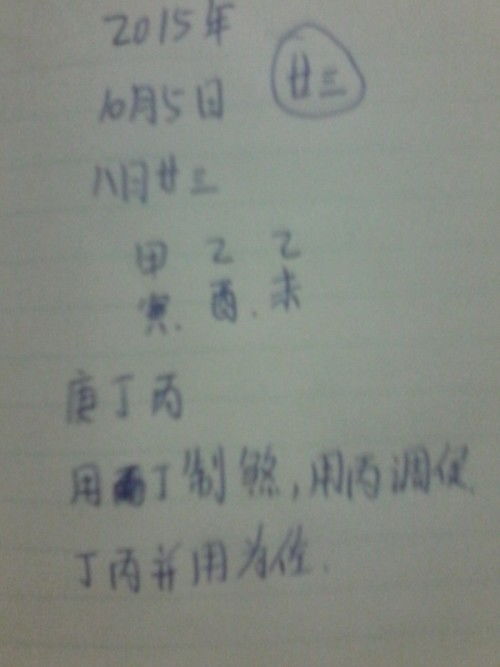 2015年
廿三
10月5日
八月廿三
甲 乙 乙
寅. 酉. 未
庚丁丙
用丁制煞,用丙调候
丁丙并用为佳.